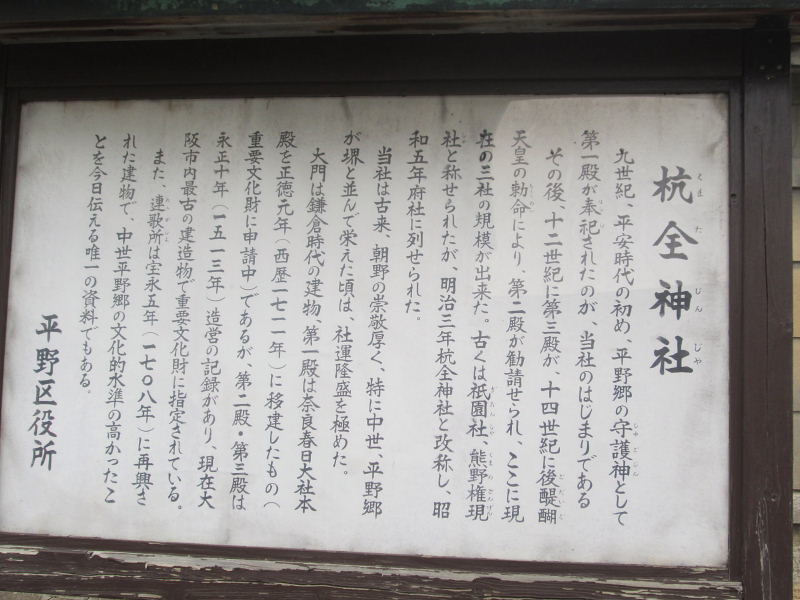 杭全神社
くまたじんじゃ
九世紀、平安時代の初め、平野郷の守護神として
第一殿が奉祀されたのが、当社のはじまりである
その後、十二世紀に第三殿が、十四世紀に後醍醐
天皇の勅命により、第二殿が勧請せられ、ここに現
在の三社の規模が出来た。古くは祇園社、熊野権現
社と称せられたが、明治三年杭全神社と改称し、昭
和五年府社に列せられた。
当社は古来、朝野の崇敬厚く、特に中世、平野郷
が堺と並んで栄えた頃は、社運隆盛を極めた。
大門は鎌倉時代の建物、第一殿は奈良春日大社本
殿を正徳元年（西歴一七一一年）に移建したもの（
重要文化財に申請中）であるが、第二殿・第三殿は
永正十年（一五一三年）造営の記録があり、現在大
阪市内最古の建造物で重要文化財に指定されている。
また、連歌所は宝永五年（一七〇八年）に再興さ
れた建物で、中世平野郷の文化的水準の高かったこ
とを今日伝える唯一の資料でもある。
平野区役所